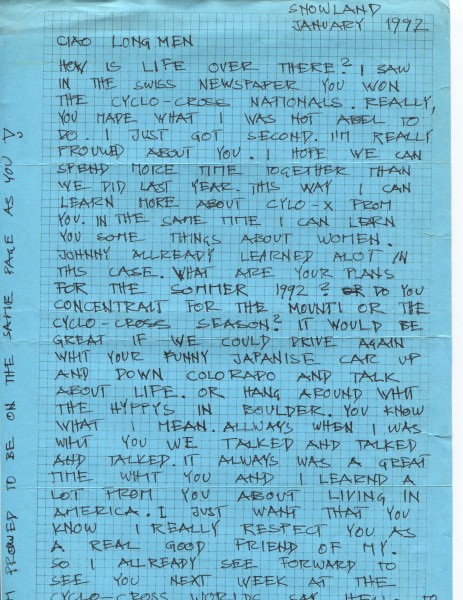 SNOWLAND
JANUARY 1992
CIAO LONG MEN
HOW IS LIFE OVER THERE? I SAW
IN THE SWISS NEWSPAPER YOU WON
THE CYCLO-CROSS NATIONALS. REALLY,
YOU MADE WHAT I WAS NOT ABEL TO
DO. I JUST GOT SECOND. I'M REALLY
PROUWED ABOUT YOU. I HOPE WE CAN
SPEND MORE TIME TOGETHER THAN
WE DID LAST YEAR. THIS WAY I CAN
LEARN MORE ABOUT CYLO-X FROM
YOU. IN THE SAME TIME I CAN LEARN
YOU SOME THINGS ABOUT WOMEN.
JOHNNY ALLREADY LEARNED ALOT IN
THIS CASE. WHAT ARE YOUR PLANS
FOR THE SOMMER 1992? DO YOU
CONCENTRAIT FOR THE MOUNTI OR THE
CYCLO-CROSS SEASON? IT WOULD BE
GREAT IF WE COULD DRIVE AGAIN
WHIT YOUR FUNNY JAPANISE CAR UP
AND DOWN COLORADO AND TALK
ABOUT LIFE. OR HANG AROUND WHIT
THE HYPPYS IN BOULDER. YOU KNOW
WHAT I MEAN. ALLWAYS WHEN I WAS
WHIT YOU WE TALKED AND TALKED
AND TALKED. IT ALWAYS WAS A GREAT
TIME WHIT YOU AND I LEARND A
LOT FROM YOU ABOUT LIVING IN
AMERICA. I JUST WANT THAT YOU
KNOW I REALLY RESPECT YOU AS
A REAL GOOD FRIEND OF MY.
SO I ALLREADY SEE FORWARD TO
SEE YOU NEXT WEEK AT THE
CYCLO-CROSS WORLDS. SAY HELLO TO
PROWED TO BE ON THE SAME PAGE AS YOU